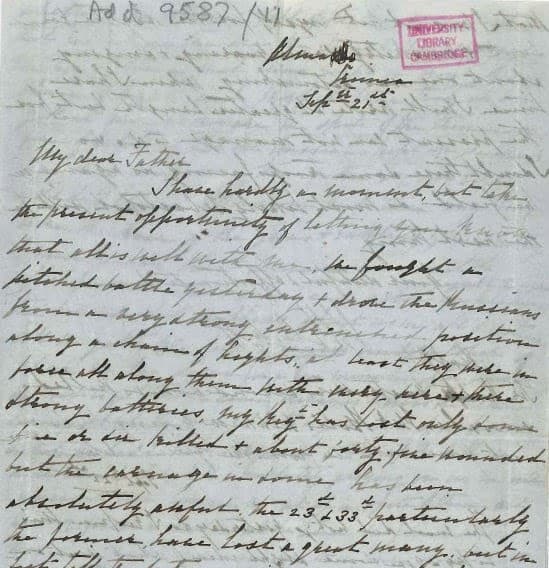 Add 9587/11
UNIVERSITY
LIBRARY
CAMBRIDGE
Crimea
Sepr 21st
My dear Father
I have hardly a moment, but take
the present opportunity of letting you know
that all is well with me, we fought a
pitched battle yesterday + drove the Russians
from a very strong entrenched position
along a chain of heights, at least they were in
force all along them with very here + there
strong batteries, my Regt has lost only some
five or six killed + about forty five wounded
but the carnage in some has been
absolutely awful. the 23d & 33d particularly
the former have lost a great many. but in